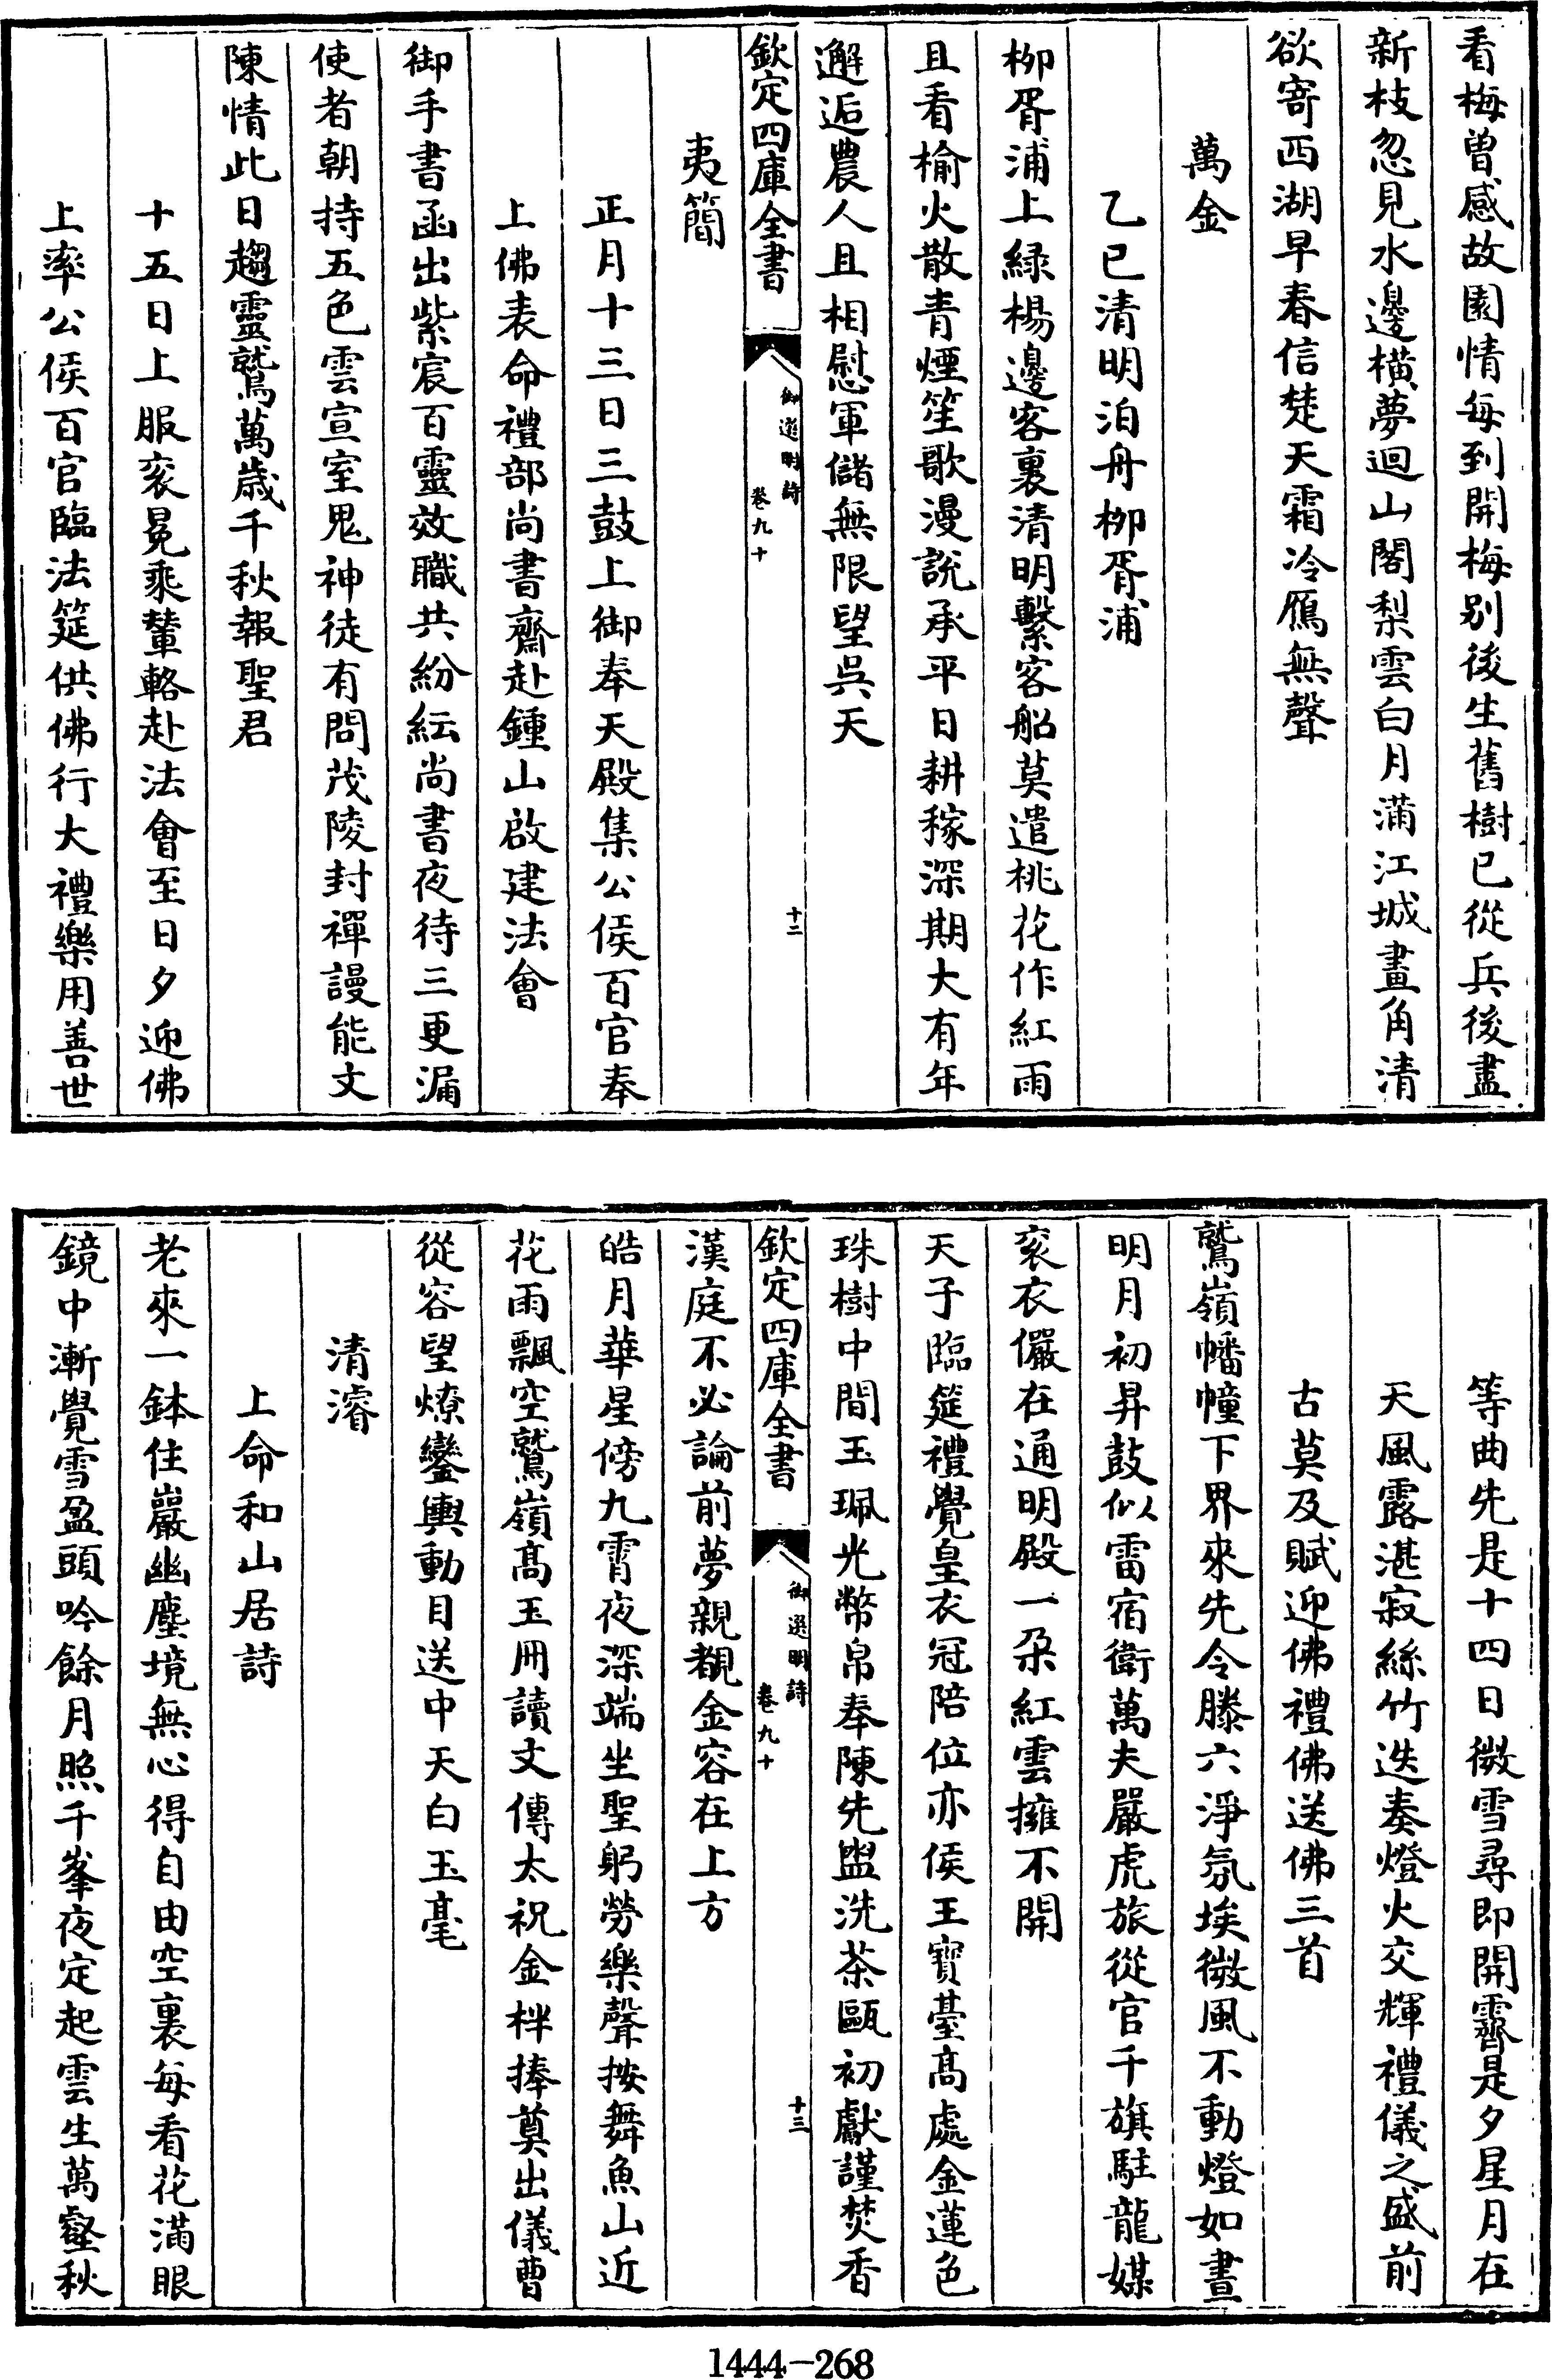 看梅曾感故園情每到開梅别後生舊樹已從兵後盡
新枝忽見水邊橫夢迴山閣梨雲白月滿江城畫角清
欲寄西湖早春信楚天霜冷鴈無聲
萬金
乙巳清明泊舟柳胥浦
柳胥浦上緑楊邊客裏清明繫客船莫遣桃花作紅雨
且看榆火散青煙笙歌漫說承平日耕稼深期大有年
邂逅農人且相慰軍儲無限望吳天
欽定四庫全書
御選明詩
卷九十
十二
夷簡
正月十三日三鼓上御奉天殿集公侯百官奉
上佛表命禮部尚書齋赴鍾山啟建法會
御手書函出紫宸百靈效職共紛紜尚書夜待三更漏
使者朝持五色雲宣室鬼神徒有問茂陵封禪謾能文
陳情此日趨靈鷲萬歲千秋報聖君
十五日上服衮冕乘輦輅赴法會至日夕迎佛
上率公侯百官臨法筵供佛行大禮樂用善世
等曲先是十四日微雪尋即開霽是夕星月在
天風露湛寂絲竹迭奏燈火交輝禮儀之盛前
古莫及賦迎佛禮佛送佛三首
鷲嶺幡幢下界來先令滕六淨氛埃微風不動燈如晝
明月初昇鼓似雷宿衛萬夫嚴虎旅從官千旗駐龍媒
衮衣儼在通明殿一朶紅雲擁不開
天子臨筵禮覺皇衣冠陪位亦侯王寶臺髙處金蓮色
珠樹中間玉珮光幣帛奉陳先盥洗茶甌初獻謹焚香
漢庭不必論前夢親覩金容在上方
欽定四庫全書
御選明詩
卷九十
十三
皓月華星傍九霄夜深端坐聖躬勞樂聲按舞魚山近
花雨飄空鷲嶺髙玉冊讀文傳太祝金柈捧奠出儀曹
從容望燎鑾輿動目送中天白玉毫
清濬
上命和山居詩
老來一鉢住巖幽塵境無心得自由空裏每看花滿眼
鏡中漸覺雪盈頭吟餘月照千峯夜定起雲生萬壑秋
1444-268